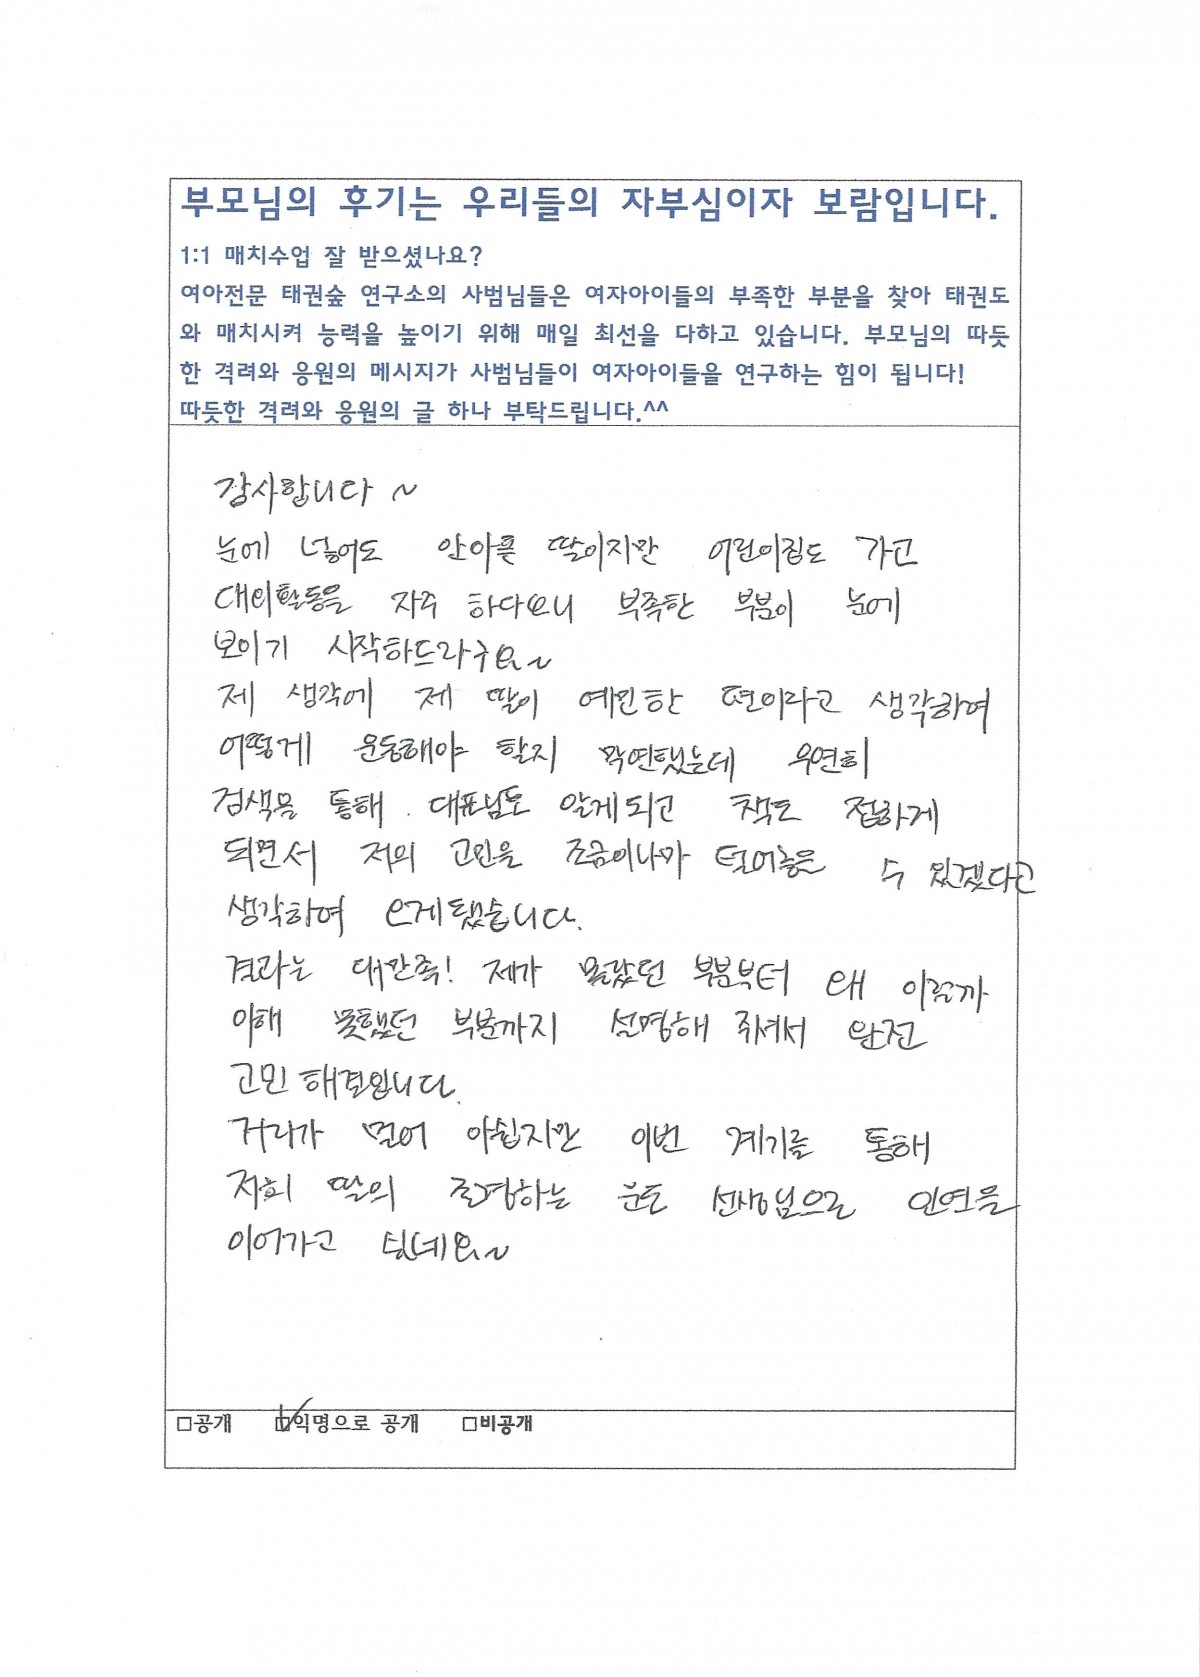 부모님의 후기는 우리들의 자부심이자 보람입니다.
1:1 매치수업 잘 받으셨나요?
여아전문 태권숲 연구소의 사범님들은 여자아이들의 부족한 부분을 찾아 태권도
와 매치시켜 능력을 높이기 위해 매일 최선을 다하고 있습니다. 부모님의 따듯
한 격려와 응원의 메시지가 사범님들이 여자아이들을 연구하는 힘이 됩니다!
따듯한 격려와 응원의 글 하나 부탁드립니다.^^
감사합니다 ~
눈에 넣어도 안아픈 딸이지만 어린이집도 가고
대외활동을 자주 하다보니 부족한 부분이 눈에
보이기 시작하드라구요~
제 생각에 제 딸이 예민한 편이라고 생각하여
어떻게 운동해야 할지 막연했는데 우연히
검색을 통해 대표님도 알게되고 책도 접하게
되면서 저의 고민을 조금이나마 털어놓을 수 있겠다고
생각하여 오게됐습니다.
결과는 대만족! 제가 몰랐던 부분부터 왜 이럴까
이해 못했던 부분까지 설명해 주셔서 완전
고민 해결입니다.
거리가 멀어 아쉽지만 이번 계기를 통해
저희 딸의 존경하는 운동 선생님으로 인연을
이어가고 싶네요~
□공개 ☑익명으로 공개 □비공개